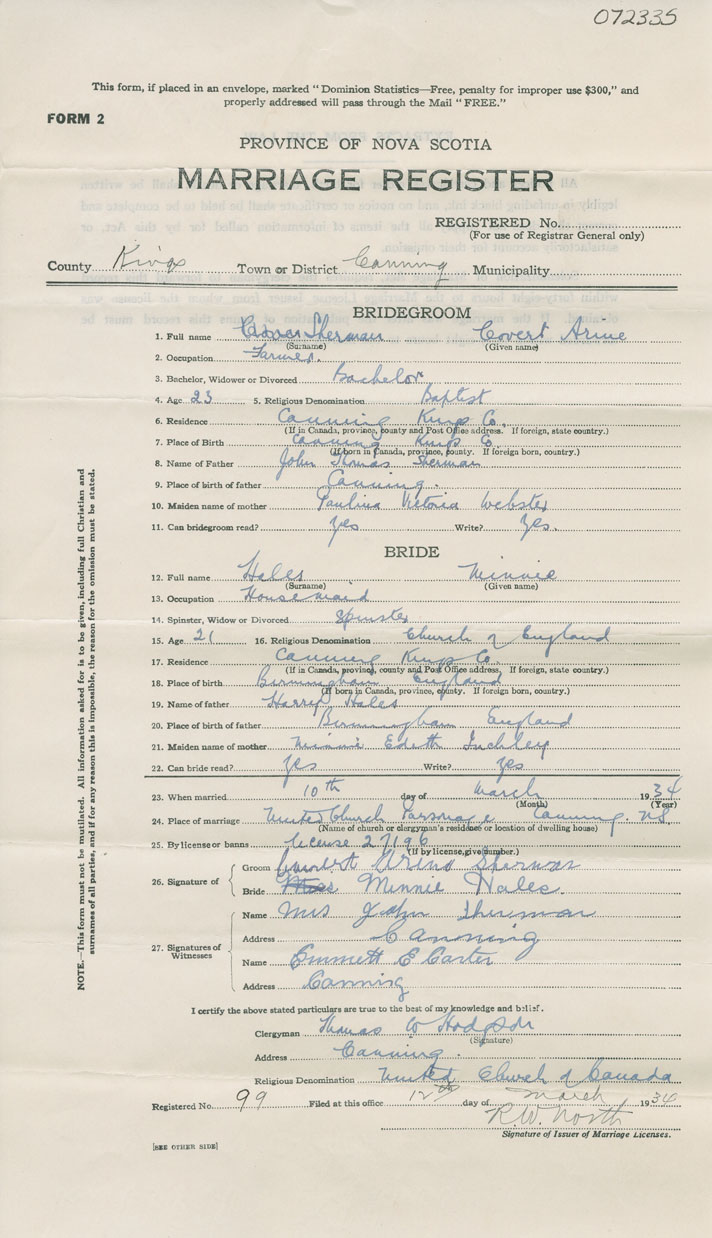 072335
This form, if placed in an envelope, marked "Dominion Statistics—Free, penalty for improper use $300," and
properly addressed will pass through the Mail "FREE."
FORM 2
PROVINCE OF NOVA SCOTIA
MARRIAGE REGISTER
REGISTERED No.
(For use of Registrar General only)
County Kings Town or District Canning Municipality
BRIDEGROOM
1. Full name Sherman Covert Arine
(Surname) (Given name)
2. Occupation Farmer.
3. Bachelor, Widower or Divorced Bachelor
4. Age 23 5. Religious Denomination Baptist
6. Residence Canning Kings Co.
(If in Canada, province, county and Post Office address. If foreign, state country.)
7. Place of Birth Canning Kings Co.
(If born in Canada, province, county. If foreign born, country.)
8. Name of Father John Thomas Sherman
9. Place of birth of father Canning.
10. Maiden name of mother Paulina Victoria Webster
11. Can bridegroom read? Yes Write? Yes.
BRIDE
12. Full name Hales Minnie
(Surname) (Given name)
13. Occupation Housemaid
14. Spinster, Widow or Divorced Spinster
15. Age 21 16. Religious Denomination Church of England
17. Residence Canning Kings Co.
(If in Canada, province, county and Post Office address. If foreign, state country.)
18. Place of birth Birmingham England
(If born in Canada, province, county. If foreign born, country.)
19. Name of father Harry Hales
20. Place of birth of father Birmingham England
21. Maiden name of mother Minnie Edith Inchley
22. Can bride read? Yes Write? Yes
23. When married 10th day of March 1934
(Month) (Year)
24. Place of marriage United Church Parsonage Canning. NS
(Name of church or clergyman's residence or location of dwelling house)
25. By license or banns License 27196
(If by license, give number.)
26. Signature of
Groom Arino Sherman
Bride Miss Minnie Hales.
27. Signatures of Witnesses
Name Mrs John Sherman
Address Canning
Name Emmett E Carter
Address Canning
I certify the above stated particulars are true to the best of my knowledge and belief.
Clergyman Thomas W Hodgson
(Signature)
Address Canning.
Religious Denomination United Church of Canada
Registered No. 99 Filed at this office 12th day of March 1934
R.W. North
Signature of Issuer of Marriage Licenses.
[SEE OTHER SIDE]
NOTE.—This form must not be mutilated. All information asked for is to be given, including full Christian and
surnames of all parties, and if for any reason this is impossible, the reason for the omission must be stated.